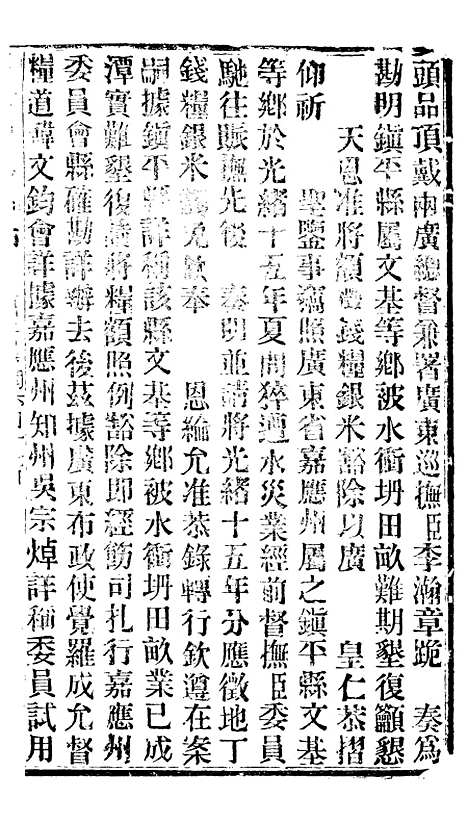 頭品頂戴兩廣總督兼署廣東巡撫臣李瀚章跪 奏爲
勘明鎭平縣屬文基等鄉被水衝坍田畝難期墾復籲懇
天恩准將額徵錢糧銀米豁除以廣 皇仁恭摺
仰祈 聖鑒事竊照廣東省嘉應州屬之鎭平縣文基
等鄉於光緒十五年夏間猝遭水災業經前督撫臣委員
馳往賑撫先後 奏明並請將光緒十五年分應徵地丁
錢糧銀米 免欽奉 恩綸允准恭錄轉行欽遵在案
嗣據鎭平縣詳稱該縣文基等鄉被水衝坍田畝業已成
潭實難墾復請將糧額照例豁除即經飭司札行嘉應州
委員會縣確勘詳辦去後茲據廣東布政使覺羅成允督
糧道 文鈞會詳據嘉應州知州吳宗焯詳稱委員試用